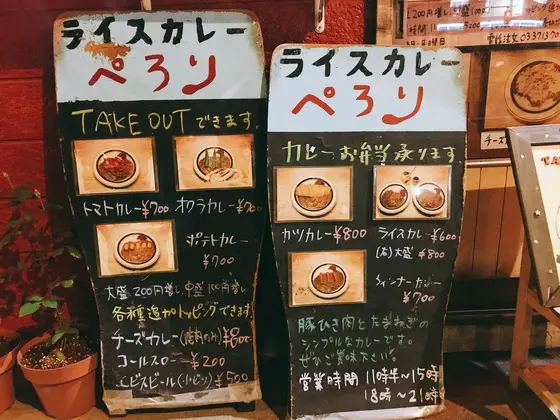 ライスカレー
ぺろり
TAKE OUTできます
トマトカレー¥700
オクラカレー¥700
ポテトカレー
¥700
大盛200円増し中盛100円増し
各種追加トッピングできます!
コールスロー ¥200
エビスビール(小ビン)¥500
ライスカレー
ぺろり
カレーお弁当承ります
カツカレー¥800
ライスカレー ¥600
(右)大盛 ¥800
ウィンナーカレー
¥700
豚ひき肉とたまねぎの
シンプルなカレーです。
ぜひご賞味下さい。
営業時間 11時半〜15時
18時〜21時